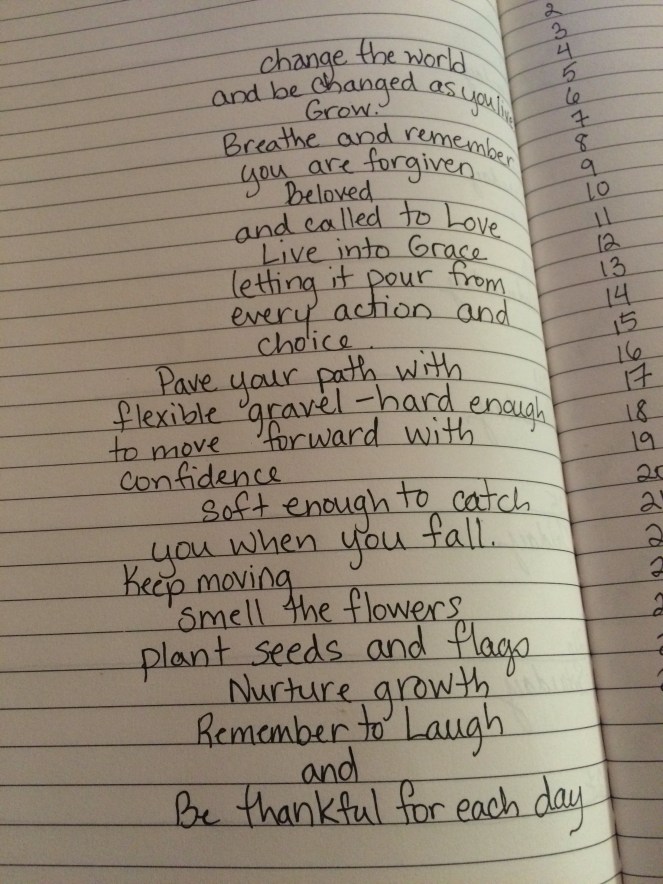 change the world
and be changed as you live
Grow.
Breathe and remember
you are forgiven
Beloved
and called to Love
Live into Grace
letting it pour from
every action and
choice.
Pave your path with
flexible gravel - hard enough
to move forward with
confidence
soft enough to catch
you when you fall.
Keep moving
smell the flowers
plant seeds and flags
Nurture growth
Remember to Laugh
and
Be thankful for each day
2
3
4
5
6
7
8
9
10
11
12
13
14
15
16
17
18
19